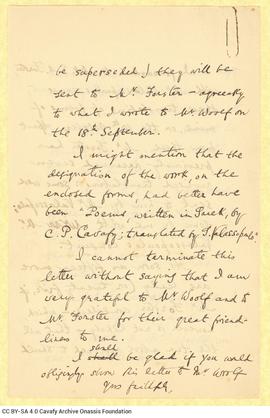 be superseded) they will be
sent to Mr Forster – agreeably
to what I wrote to Mr Woolf on
the 18th September.
I might mention that the
designation of the work, on the
enclosed forms, had better have
been "Poems, written in Greek, by
C. P. Cavafy; translated by
I cannot terminate this
letter without saying that I am
very grateful to Mr Woolf and to
Mr Forster for their great friend-
liness to me.
I shall be glad if you would
obligingly show this letter to Mr Woolf
Yrs faithfly,
CC BY-SA 4.0 Cavafy Archive Onassis Foundation